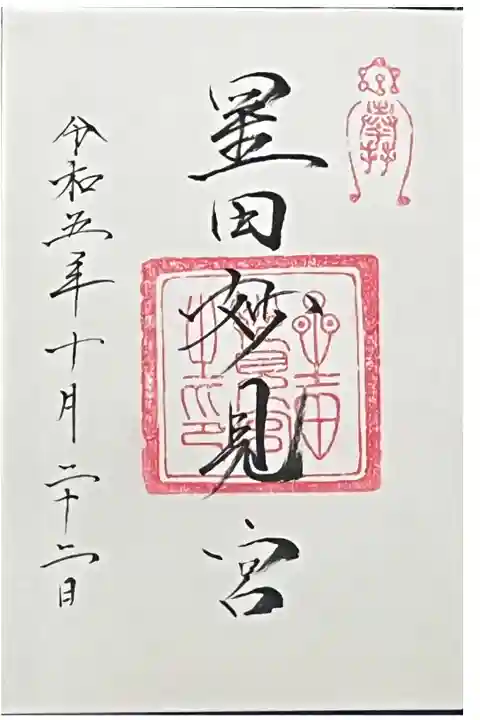 星田妙見宮
令和五年十月二十二日